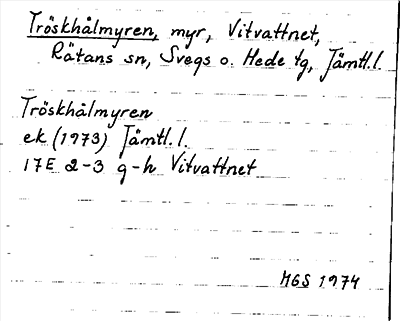 Tröskhålmyren, myr, Vitvattnet,
Rätans sn, Svegs o. Hede tg, Jämtl.l.
Tröskhålmyren
ek (1973) Jämtl.l.
17E 2-3 g-h Vitvattnet
MGS 1974